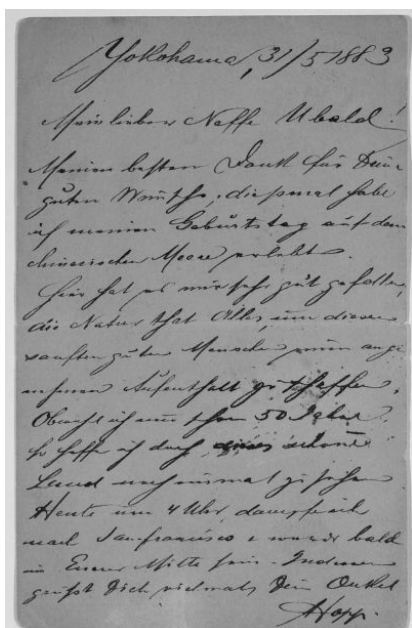 Yokohama, 31/5 1883
Mein lieber Neffe Ubald!
Meinen besten Dank für Deine
guten Wünsche, diesmal habe
ich meinen Geburtstag auf dem
chinesischen Meere erlebt.
Hier hat es mir sehr gut gefallen,
die Natur that Alles, um diesen
sanften guten Menschen einen ange
nehmen Aufenthalt zu schaffen.
Obwohl ich nun schon 50 Jahre
so hoffe ich doch, dieses schöne
Land noch einmal zu sehen
Heute um 4 Uhr dampfe ich
nach Sanfrancisco u werde bald
in Eurer Mitte sein. Indessen
grüßt Dich vielmals Dein Onkel
Hopp.